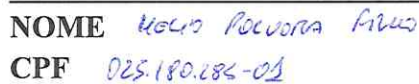 NOME Helio Polvora Filho
CPF 025.180.285-01